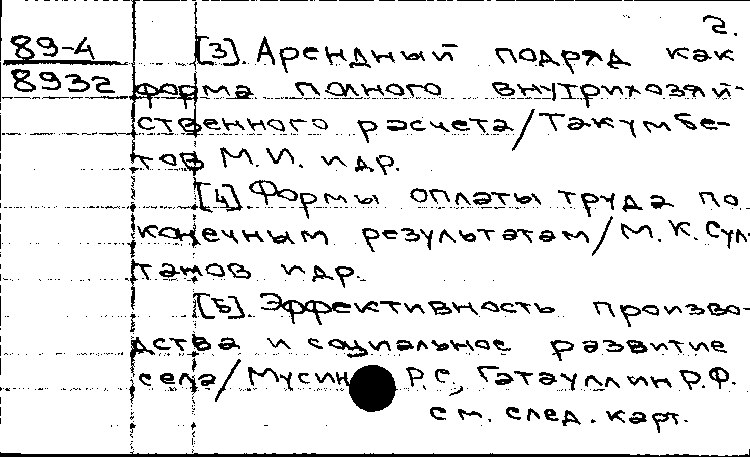 2.
89-4 [3]. Арендный подряд как
8932 форма полного внутрихозяй-
ственного расчета/Такумбе-
тов М.И. и др.
[4]. Формы оплаты труда по
конечным результатам/М.К. Сул-
танов и др.
[5]. Эффективность произво-
дства и социальное развитие
села/Мусин Р.С., Гатауллин Р.Ф.
см. след. карт.